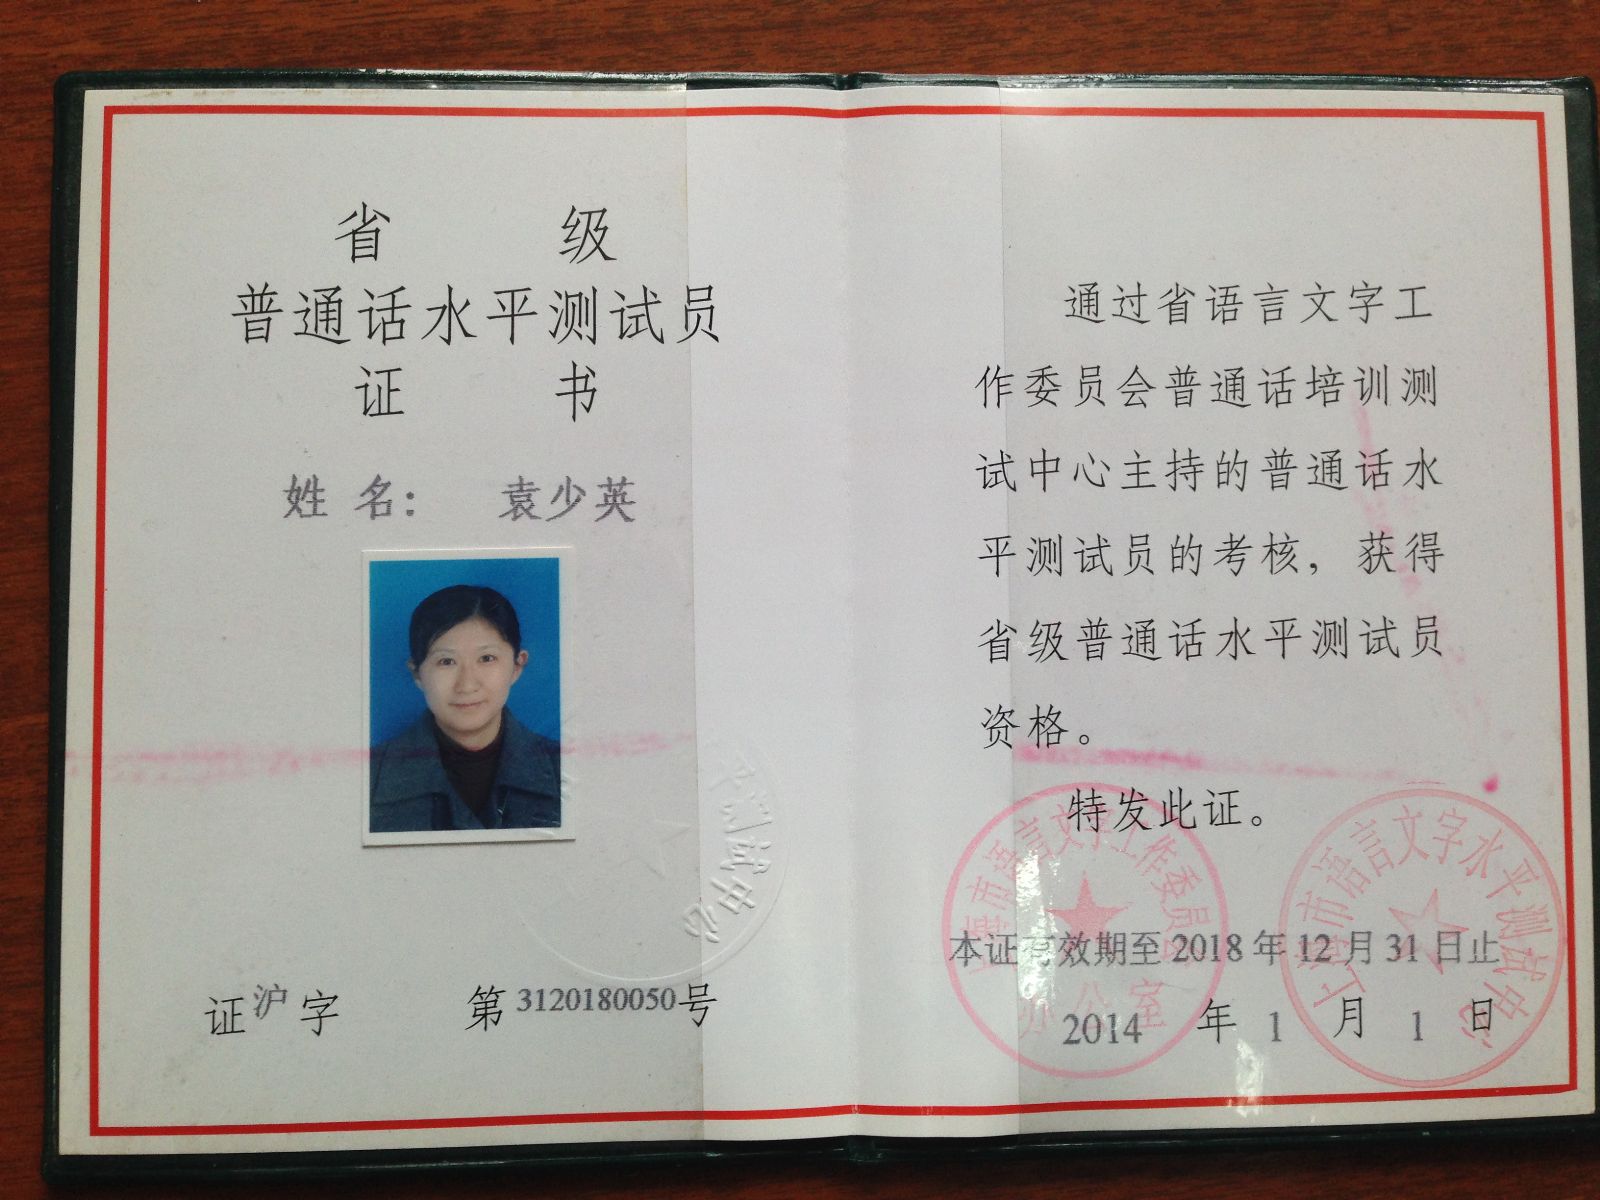 省 级
普通话水平测试员
证 书
姓 名： 袁少英
平测试中心
证沪字 第3120180050号
通过省语言文字工
作委员会普通话培训测
试中心主持的普通话水
平测试员的考核，获得
省级普通话水平测试员
资格。
特发此证。
上海市语言文字工作委员会
办公室
上海市语言文字水平测试中心
本证有效期至2018年12月31日止
2014 年 1 月 1 日